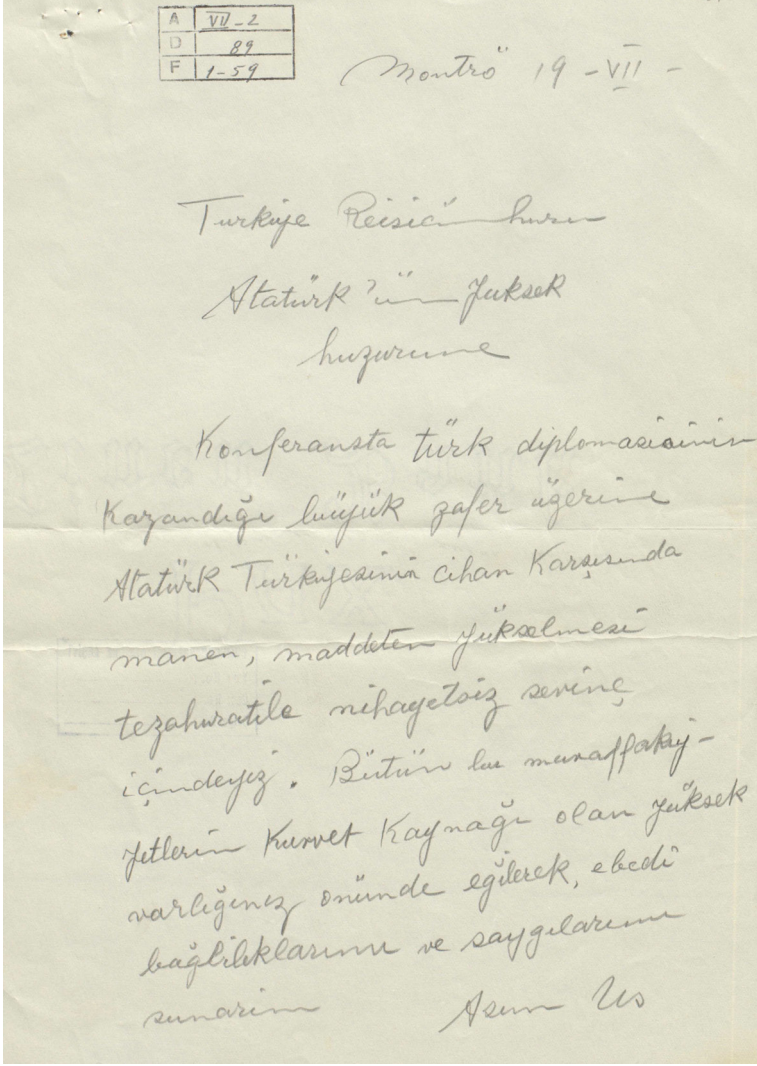 A VII-2
D 89
F 1-59
Montrö 19-VII-
Türkiye Reisicümhuru
Atatürk'ün yüksek
huzuruna
Konferansta türk diplomasisinin
Kazandığı büyük zafer üzerine
Atatürk Türkiyesinin cihan Karşısında
manen, maddeten yükselmesi
tezahuratile nihayetsiz sevinç
içindeyiz. Bütün bu muvaffakiy-
yetlerin Kuvvet Kaynağı olan yüksek
varlığınız önünde eğilerek, ebedî
bağlılıklarımı ve saygılarımı
sunarım Asım Us